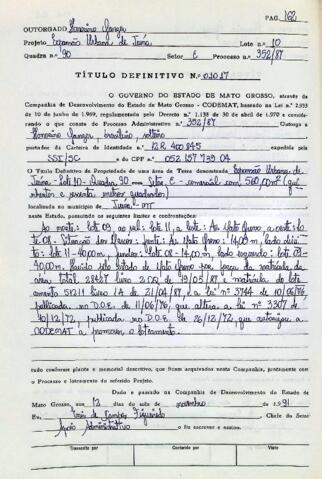 PAG. 162
OUTORGADO
Projeto Expansão Urbana de Juína Lote nº 10
Quadra nº 90 Setor E Processo nº 352/87
TÍTULO DEFINITIVO Nº 01017
O GOVERNO DO ESTADO DE MATO GROSSO, através da
Companhia de Desenvolvimento do Estado de Mato Grosso - CODEMAT, baseado na Lei nº 2.933
de 10 de junho de 1969, regulamentada pelo Decreto nº 1.138 de 30 de abril de 1970 e considerando
o que consta do Processo Administrativo nº 352/87 Outorga a
brasileiro, solteiro
portador da Carteira de Identidade nº 12R 400 845 expedida pela
SSI/SC e do CPF nº 052 157 739 04
O Título Definitivo de Propriedade de uma área de Terra denominada Expansão Urbana de
Juína - Lote 10 - Quadra 90 Setor E - comercial com 560,00m² (quinhentos
e sessenta metros quadrados)
localizada no município de Juína - MT
neste Estado, passando os seguintes limites e confrontações:
Ao norte: lote 09, ao sul: lote 11, a leste: Av. Mato Grosso, a oeste: lote
08 - frente: Av. Mato Grosso: 14,00m, lado direito:
lote: 11 - 40,00m, fundos: lote 08 - 14,00m, lado esquerdo: lote 09 -
40,00m. Havido pelo Estado de Mato Grosso por força da matrícula da
área total 28427 livro 2 de 19/05/87, e matrícula do loteamento
51211 livro 1A de 21/04/87, e a lei nº 3744 de 10/06/76
publicada no D.O.E. de 11/06/76, que altera a lei nº 3307 de
/12/72, publicada no D.O.E. de 26/12/72, que autoriza a
CODEMAT a promover o loteamento.
tudo conforme planta e memorial descritivo, que ficam arquivados nesta Companhia, juntamente com
o Processo e loteamento do referido Projeto.
Dado e passado na Companhia de Desenvolvimento do Estado de
Mato Grosso, aos 12 dias do mês de novembro de 1991
Eu, Chefe do Setor
Apoio Administrativo o fiz escrever e assino.
Transcrito por Conferido por Visto